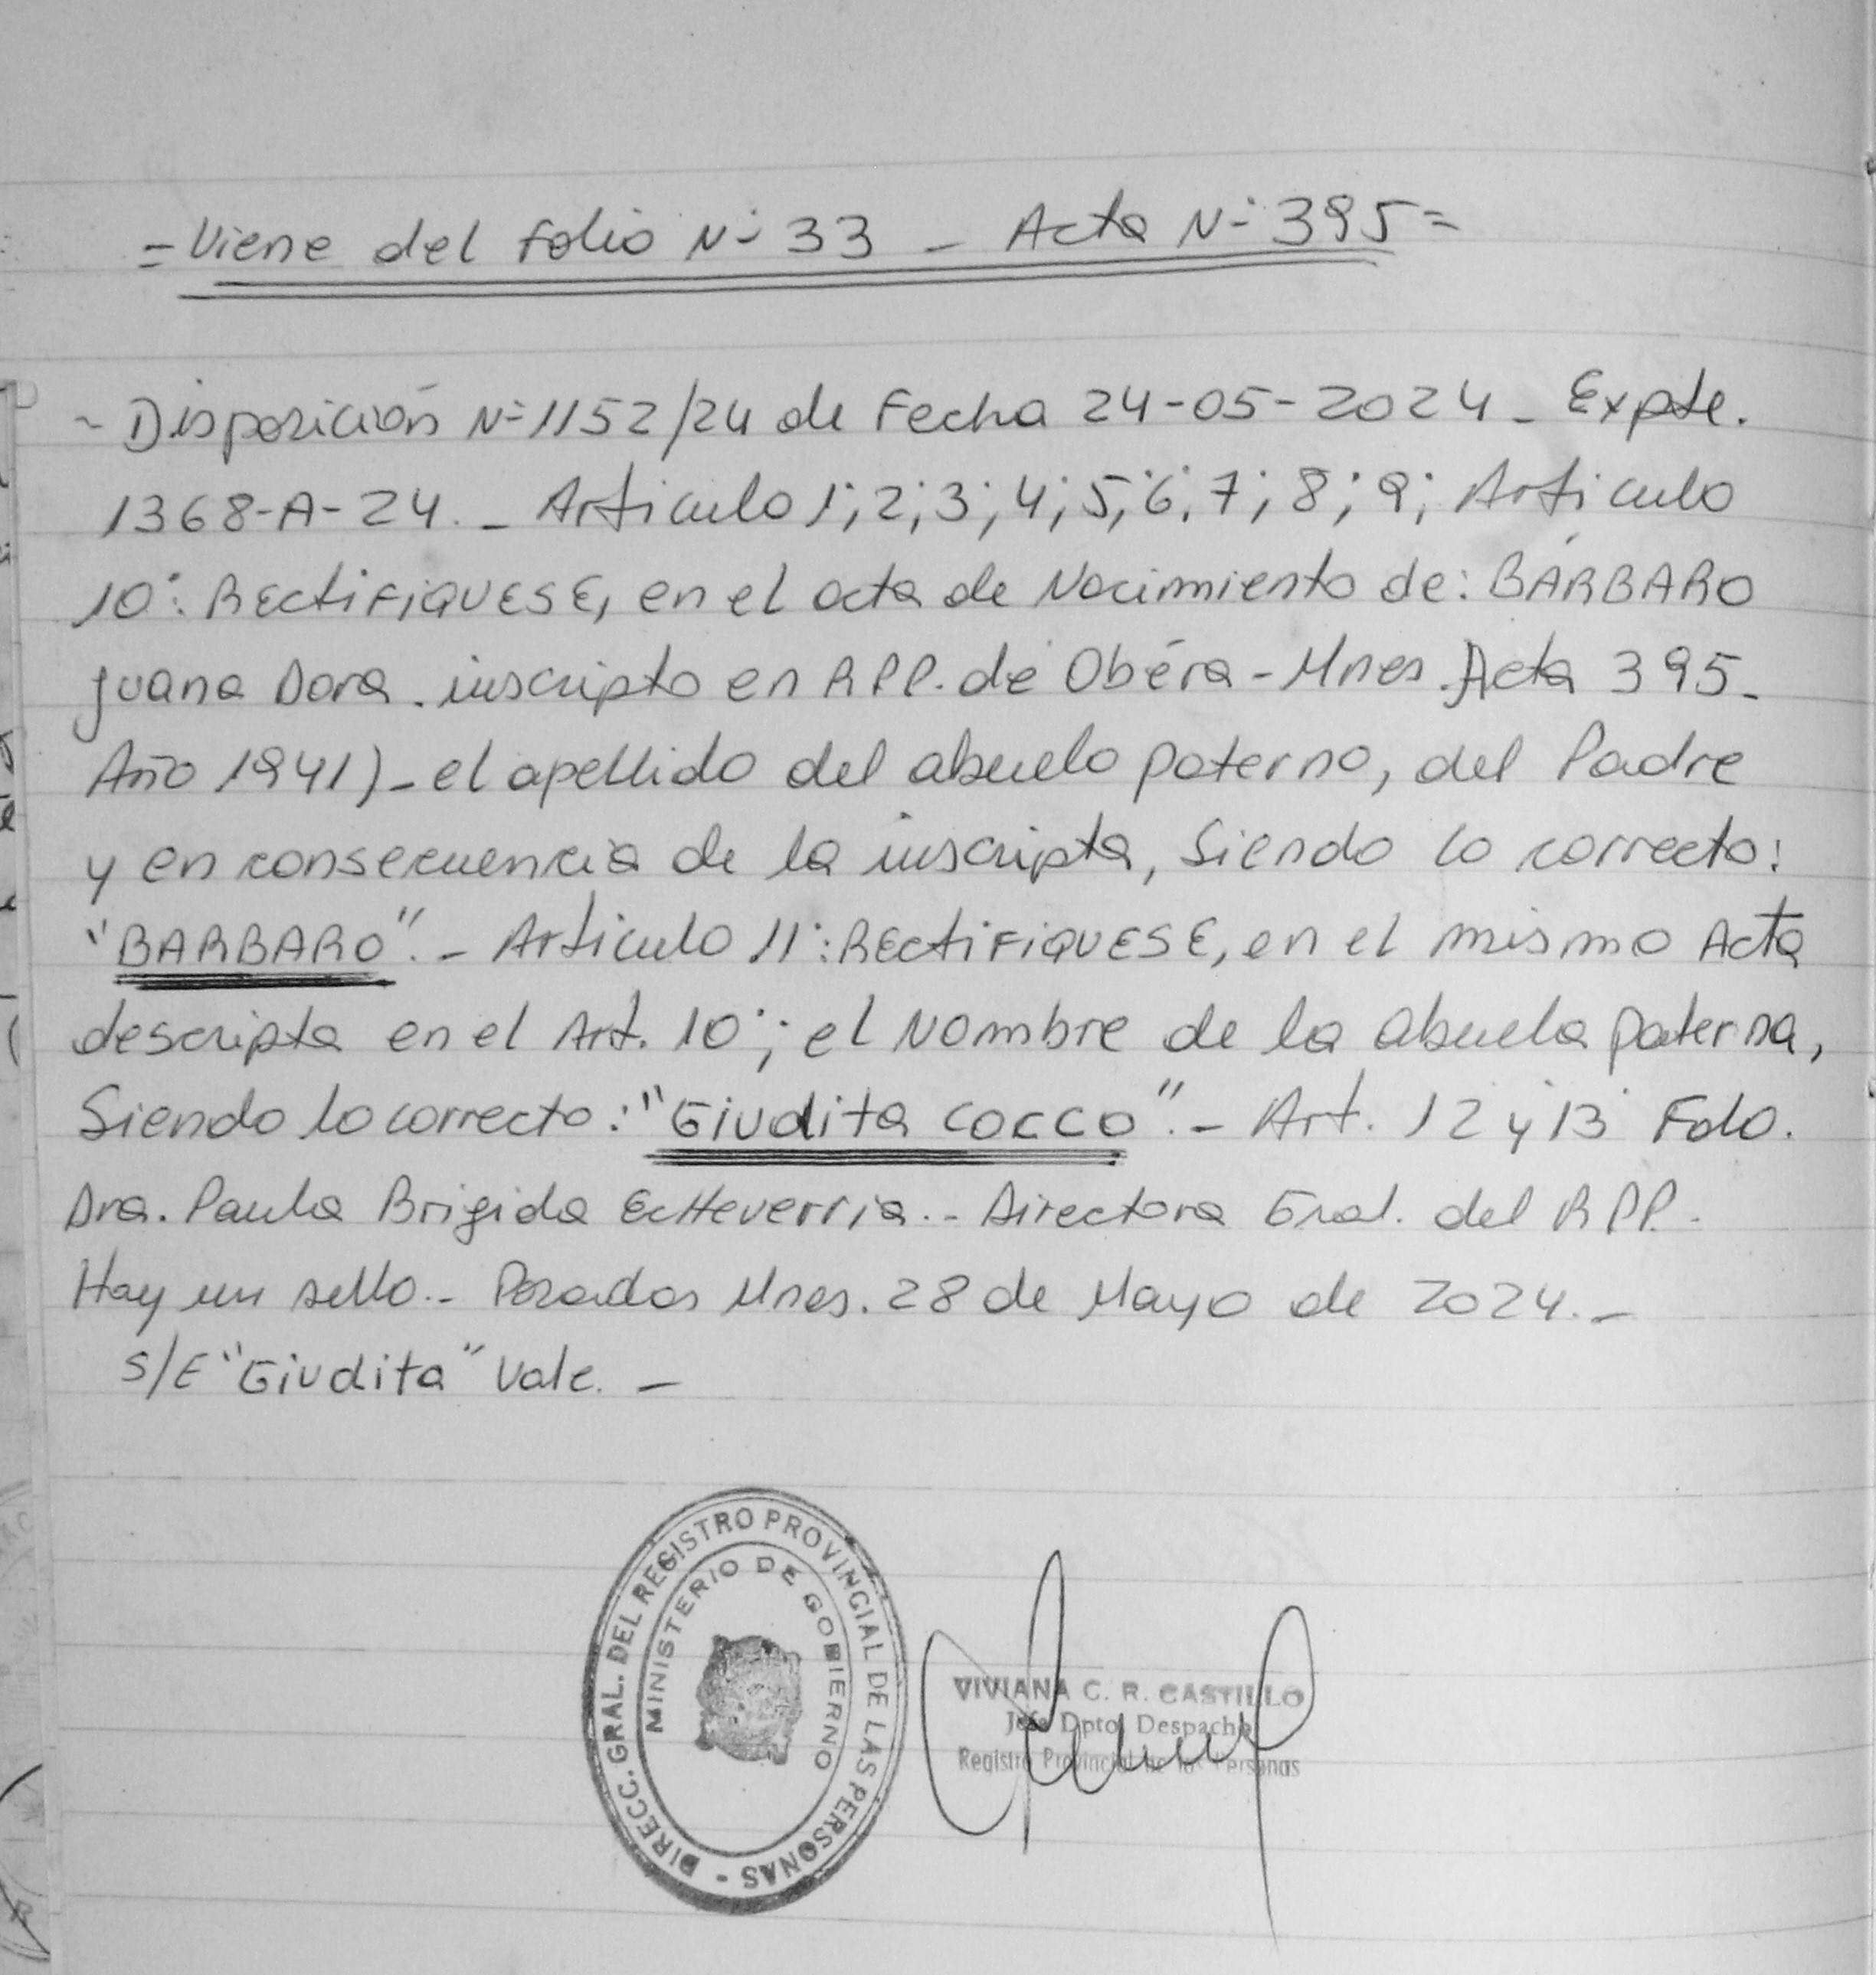 = Viene del folio N° 33 - Acta N° 395 =
- Disposición N° 1152/24 de Fecha 24-05-2024 - Expte.
1368-A-24. - Articulo 1°; 2°; 3°; 4°; 5°; 6°; 7°; 8°; 9°; Articulo
10°: RECtiFiQUESE, en el acta de Nacimiento de: BÁRBARO
Juana Dora. inscripto en RPP. de Obéra - Mnes. Acta 395.
Año 1941) - el apellido del abuelo paterno, del Padre
y en consecuencia de la inscripta, Siendo lo correcto:
"BARBARO". - Articulo 11°: RECtiFiQUESE, en el mismo Acta
descripta en el Art. 10°; el Nombre de la abuela paterna,
Siendo lo correcto: "Giudita COCCO". - Art. 12° y 13° Fdo.
Dra. Paula Brigida Echeverria. - Directora Gral. del RPP. -
Hay un sello. - Posadas Mnes. 28 de Mayo de 2024. -
S/E "Giudita" Vale. -
DIRECC. GRAL. DEL REGISTRO PROVINCIAL DE LAS PERSONAS -
MINISTERIO DE GOBIERNO
VIVIANA C. R. CASTILLO
Jefa Dpto. Despacho
Registro Provincial de las Personas